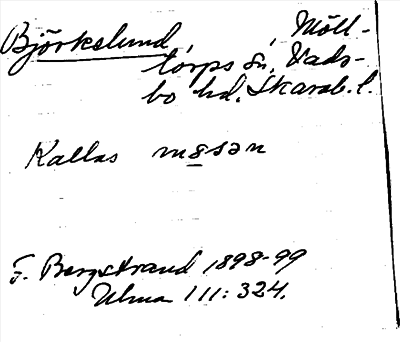 Björkelund, , Möll-
torps sn, Vads-
bo hd. Skarab. l.
Kallas m8sən
F. Bergstrand 1898-99
Ulma 111: 324.